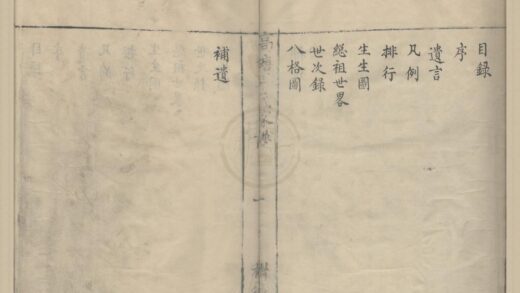 目錄
序
遺言
凡例
排行
生生圖
總祖世畧
世次錄
八格圖
補遺
一